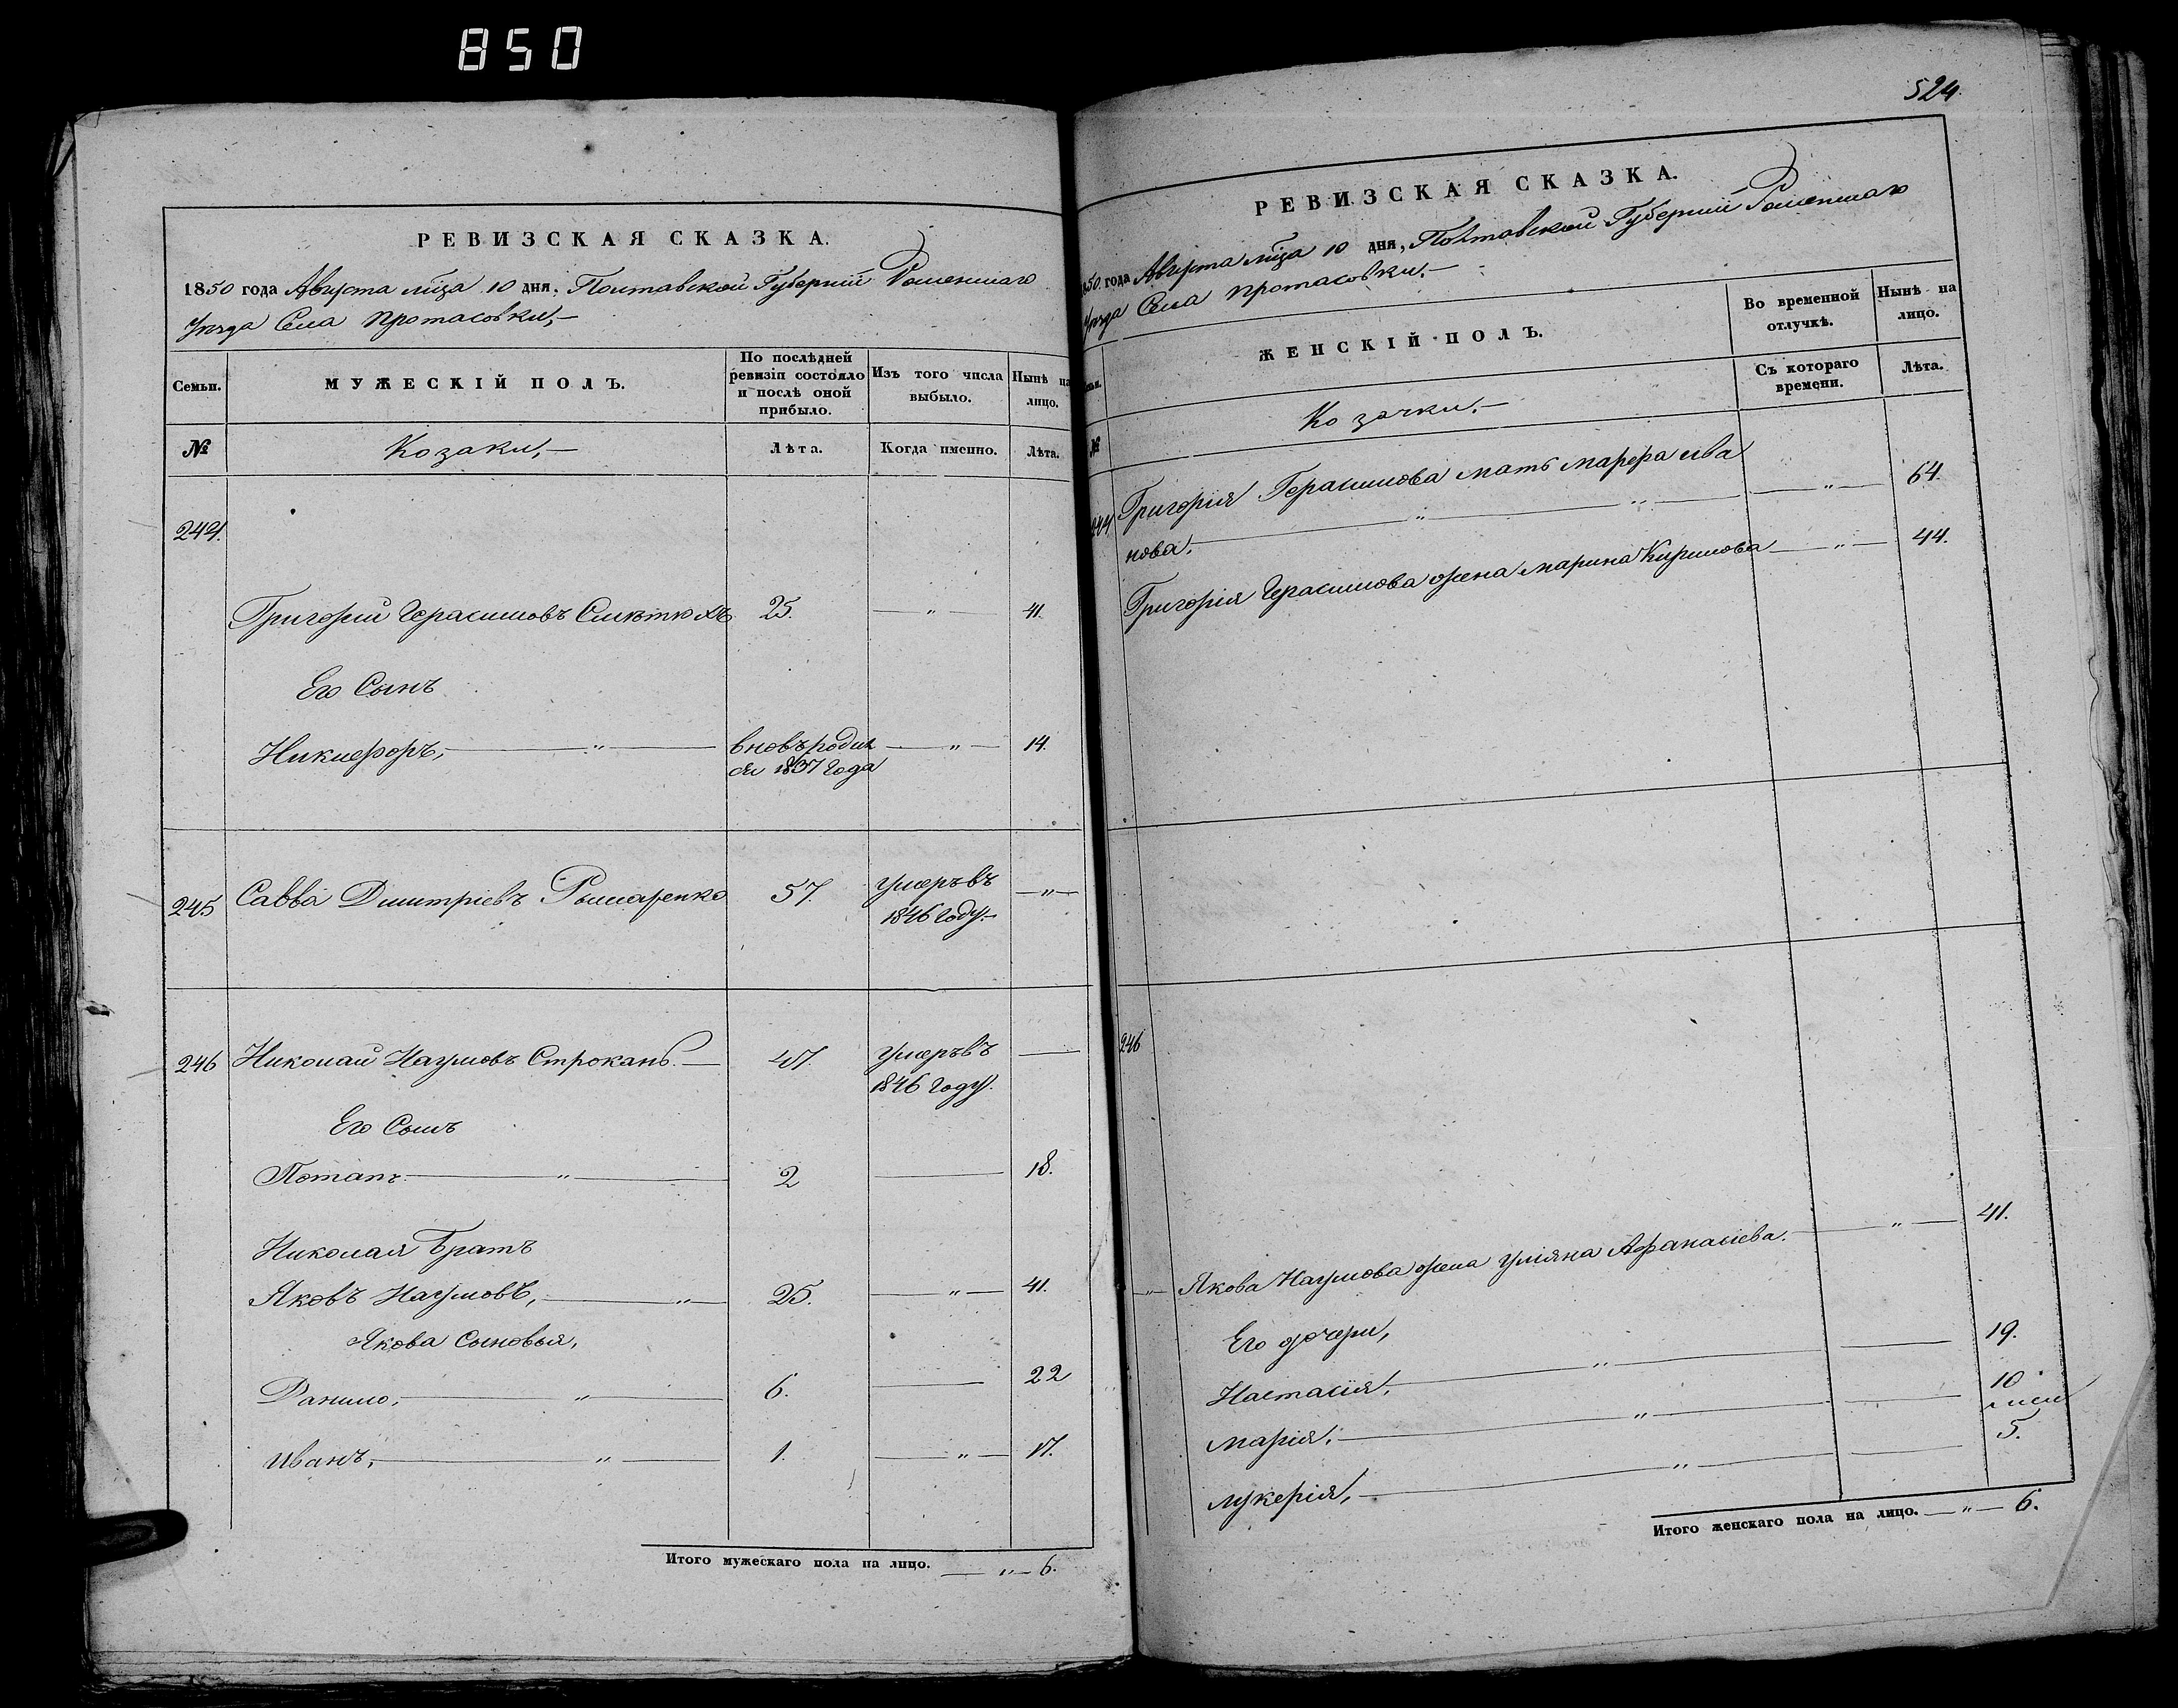 850
РЕВИЗСКАЯ СКАЗКА.
1850 года Августа мца 10 дня, Полтавской Губерніи Роменскаго
Уѣзда Села Протасовки,—
Семьи. МУЖЕСКІЙ ПОЛЪ. По послѣдней ревизіи состояло и послѣ оной прибыло. Изъ того числа выбыло. Нынѣ на лицо.
№ Козаки,— Лѣта. Когда именно. Лѣта.
244.
Григорій Герасимовъ 25. — „ — 41.
Его Сынъ
Никифоръ, — „ — вновь родил — „ — 14.
ся 1837 года
245 Савва Дмитріевъ Рымаренко 57. умеръ въ — „ —
1846 году.—
246 Николай Наумовъ Строкань. — 47. умеръ въ —
1846 году.
Его Сынъ
Потапъ — „ — 2 — 18.
Николая Братъ
Яковъ Наумовъ, — „ — 25. — „ — 41.
Якова Сыновья,
Данило, — „ — 6. — 22
Иванъ, — „ — 1. — „ — 17.
Итого мужескаго пола на лицо. — „ — 6.
524.
РЕВИЗСКАЯ СКАЗКА.
850 года Августа мца 10 дня, Полтавской Губерніи Роменскаго
Уѣзда Села Протасовки,—
ЖЕНСКІЙ ПОЛЪ. Во временной отлучкѣ. Нынѣ на лицо.
№ Козачки,— Съ котораго времени. Лѣта.
244 Григорія Герасимова мать Марфа Ива
нова, — „ — „ — „ — 64.
Григорія Герасимова жена Марина Кирилова — „ — 44.
246
— „ — Якова Наумова жена Уліяна Афанасіева. — „ — 41.
Его дочери,
Настасія, — „ — 19.
Марія, — „ — 10
Лукерія, — „ — 5.
Итого женскаго пола на лицо. — „ — 6.